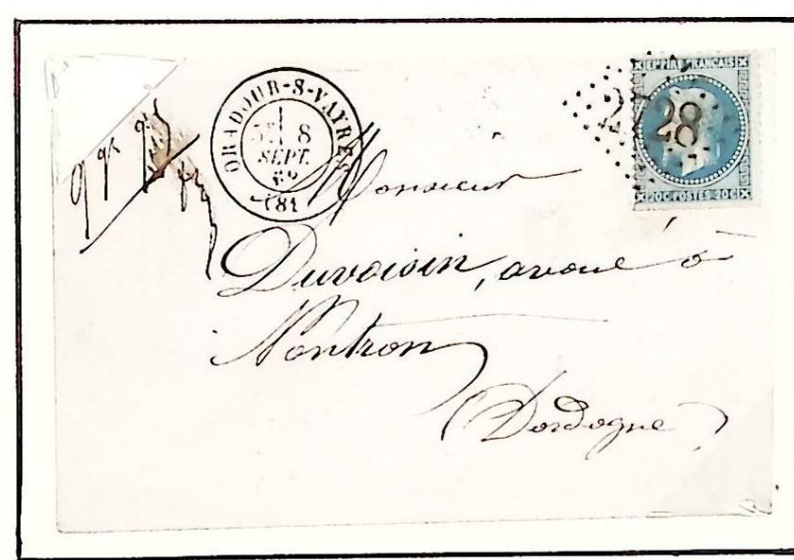 ORADOUR-S-VAYRES
8
SEPT.
(81)
EMPIRE FRANÇAIS
2728
20C POSTES 20C
Monsieur
Duvoisin, avoué à
Nontron
(Dordogne)